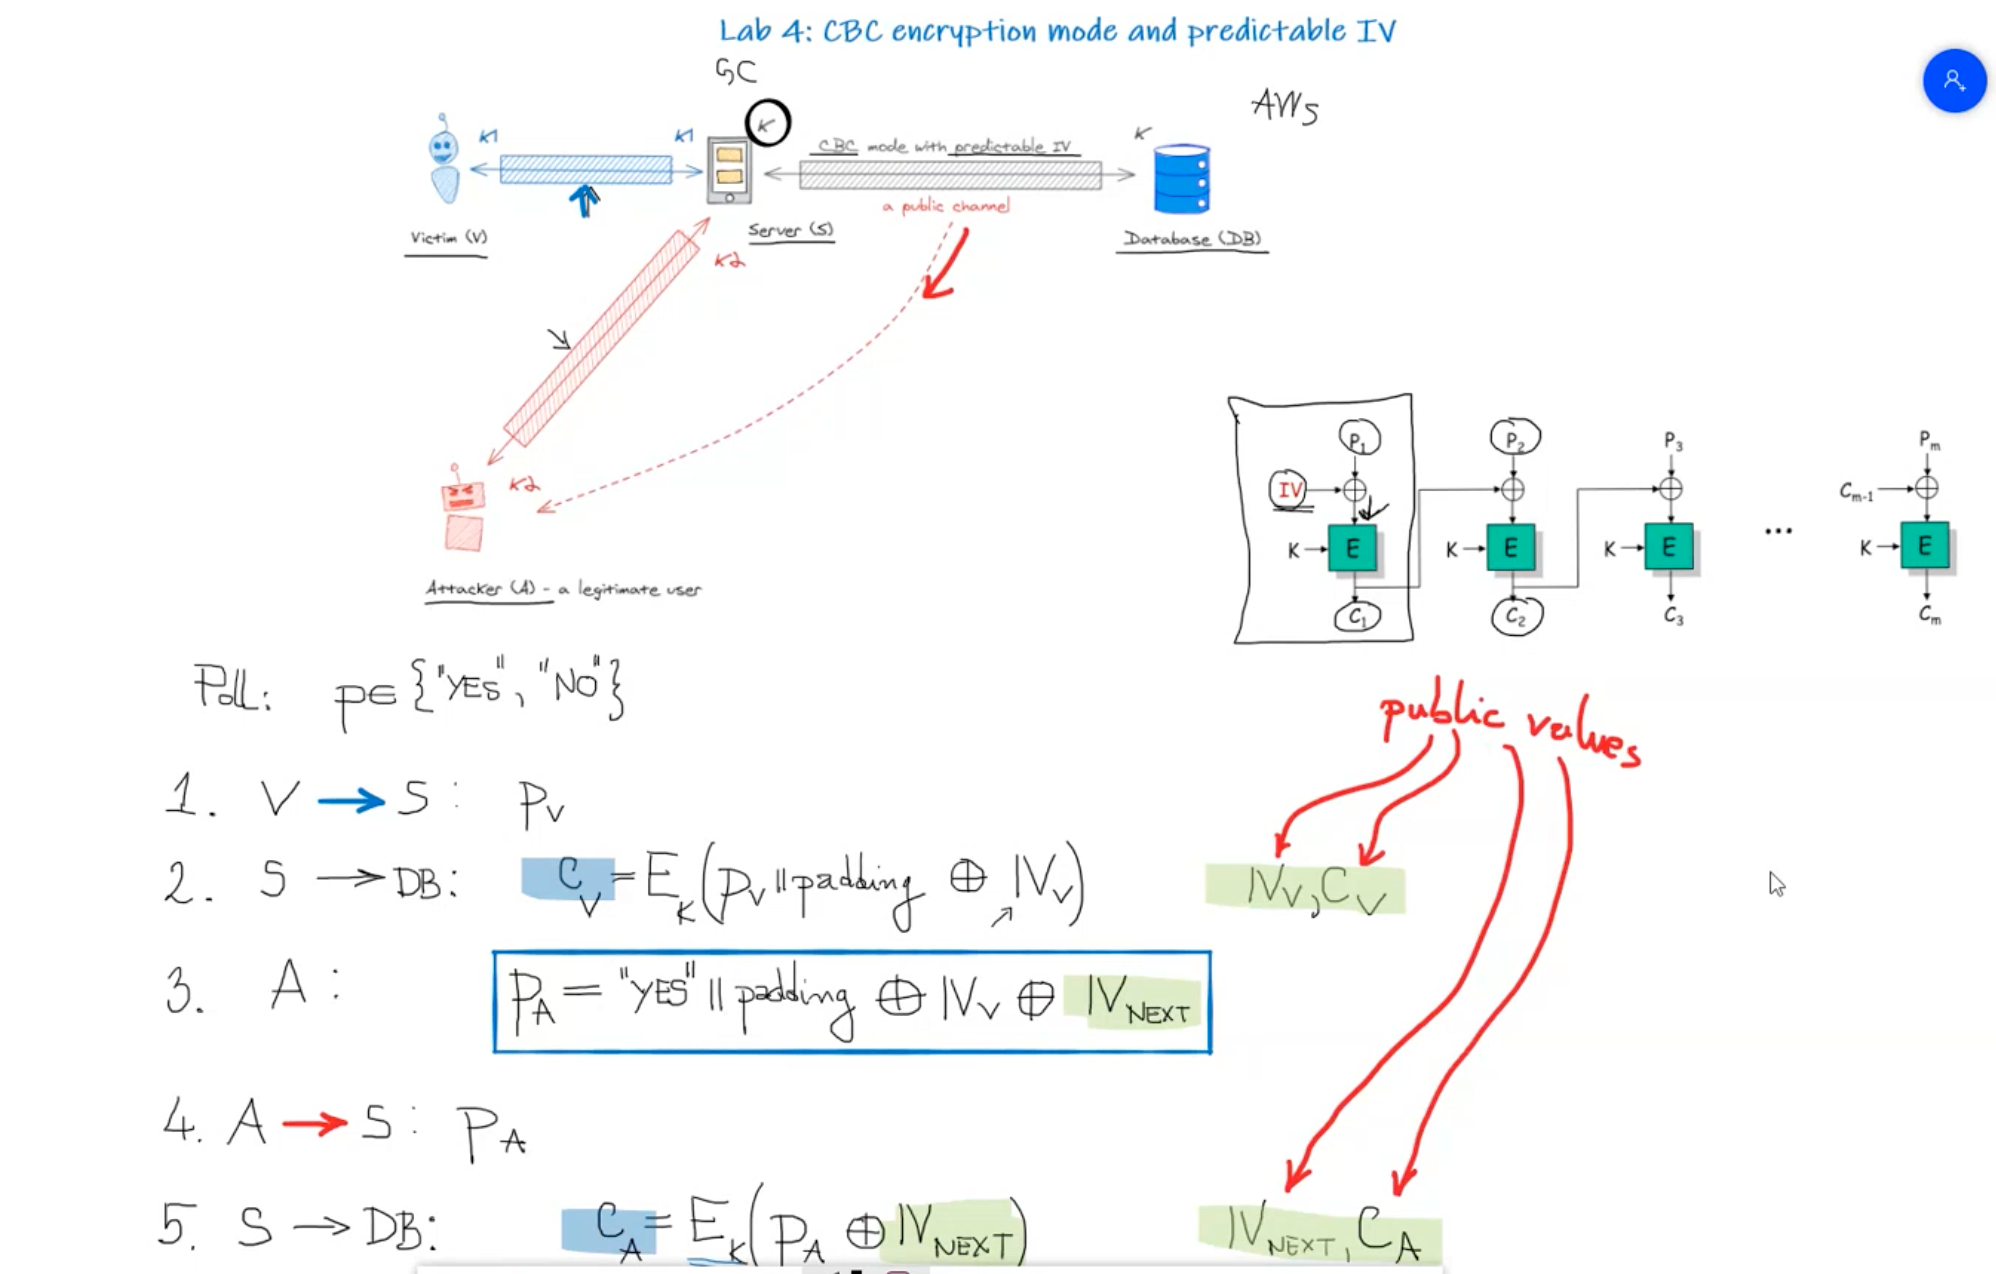 Lab 4: CBC encryption mode and predictable IV
SC
AWS
K1
K1
K
CBC mode with predictable IV
K
a public channel
Victim (V)
Server (S)
Database (DB)
K2
K2
Attacker (A) - a legitimate user
P1
P2
P3
Pm
IV
Cm-1
K
E
K
E
K
E
...
K
E
C1
C2
C3
Cm
Poll: p∈{"YES", "NO"}
public values
1. V → S: PV
2. S → DB: CV = EK(PV || padding ⊕ IVV) IVV, CV
3. A: PA = "YES" || padding ⊕ IVV ⊕ IVNEXT
4. A → S: PA
5. S → DB: CA = EK(PA ⊕ IVNEXT) IVNEXT, CA